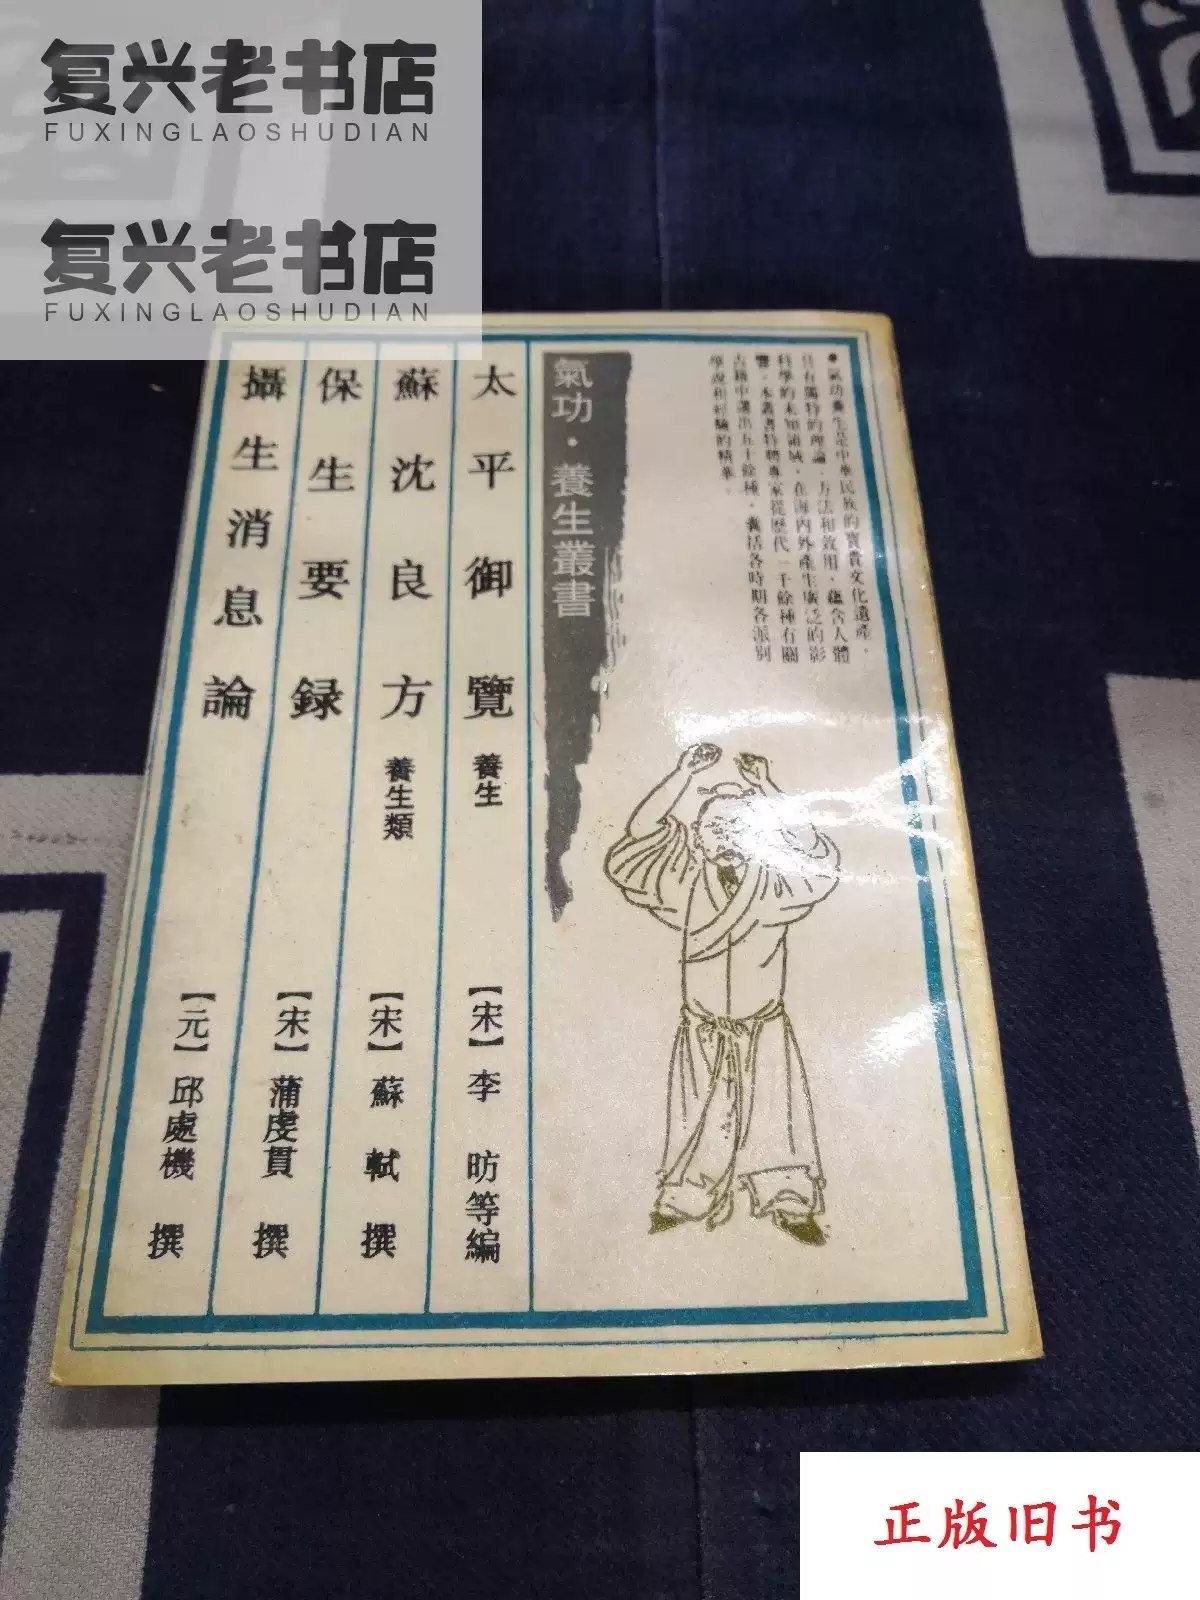 复兴老书店
FUXINGLAOSHUDIAN
复兴老书店
FUXINGLAOSHUDIAN
●氣功養生是中華民族的寶貴文化遺產，
具有獨特的理論、方法和效用，蘊含人體
科學的未知領域，在海內外產生廣泛的影
響。本叢書特聘專家從歷代一千餘種有關
古籍中選出五十餘種，囊括各時期各派別
學說和經驗的精華。
氣功·養生叢書
太平御覽 養生 【宋】李昉等編
蘇沈良方 養生類 【宋】蘇軾 撰
保生要録 【宋】蒲虔貫 撰
攝生消息論 【元】邱處機 撰
正版旧书